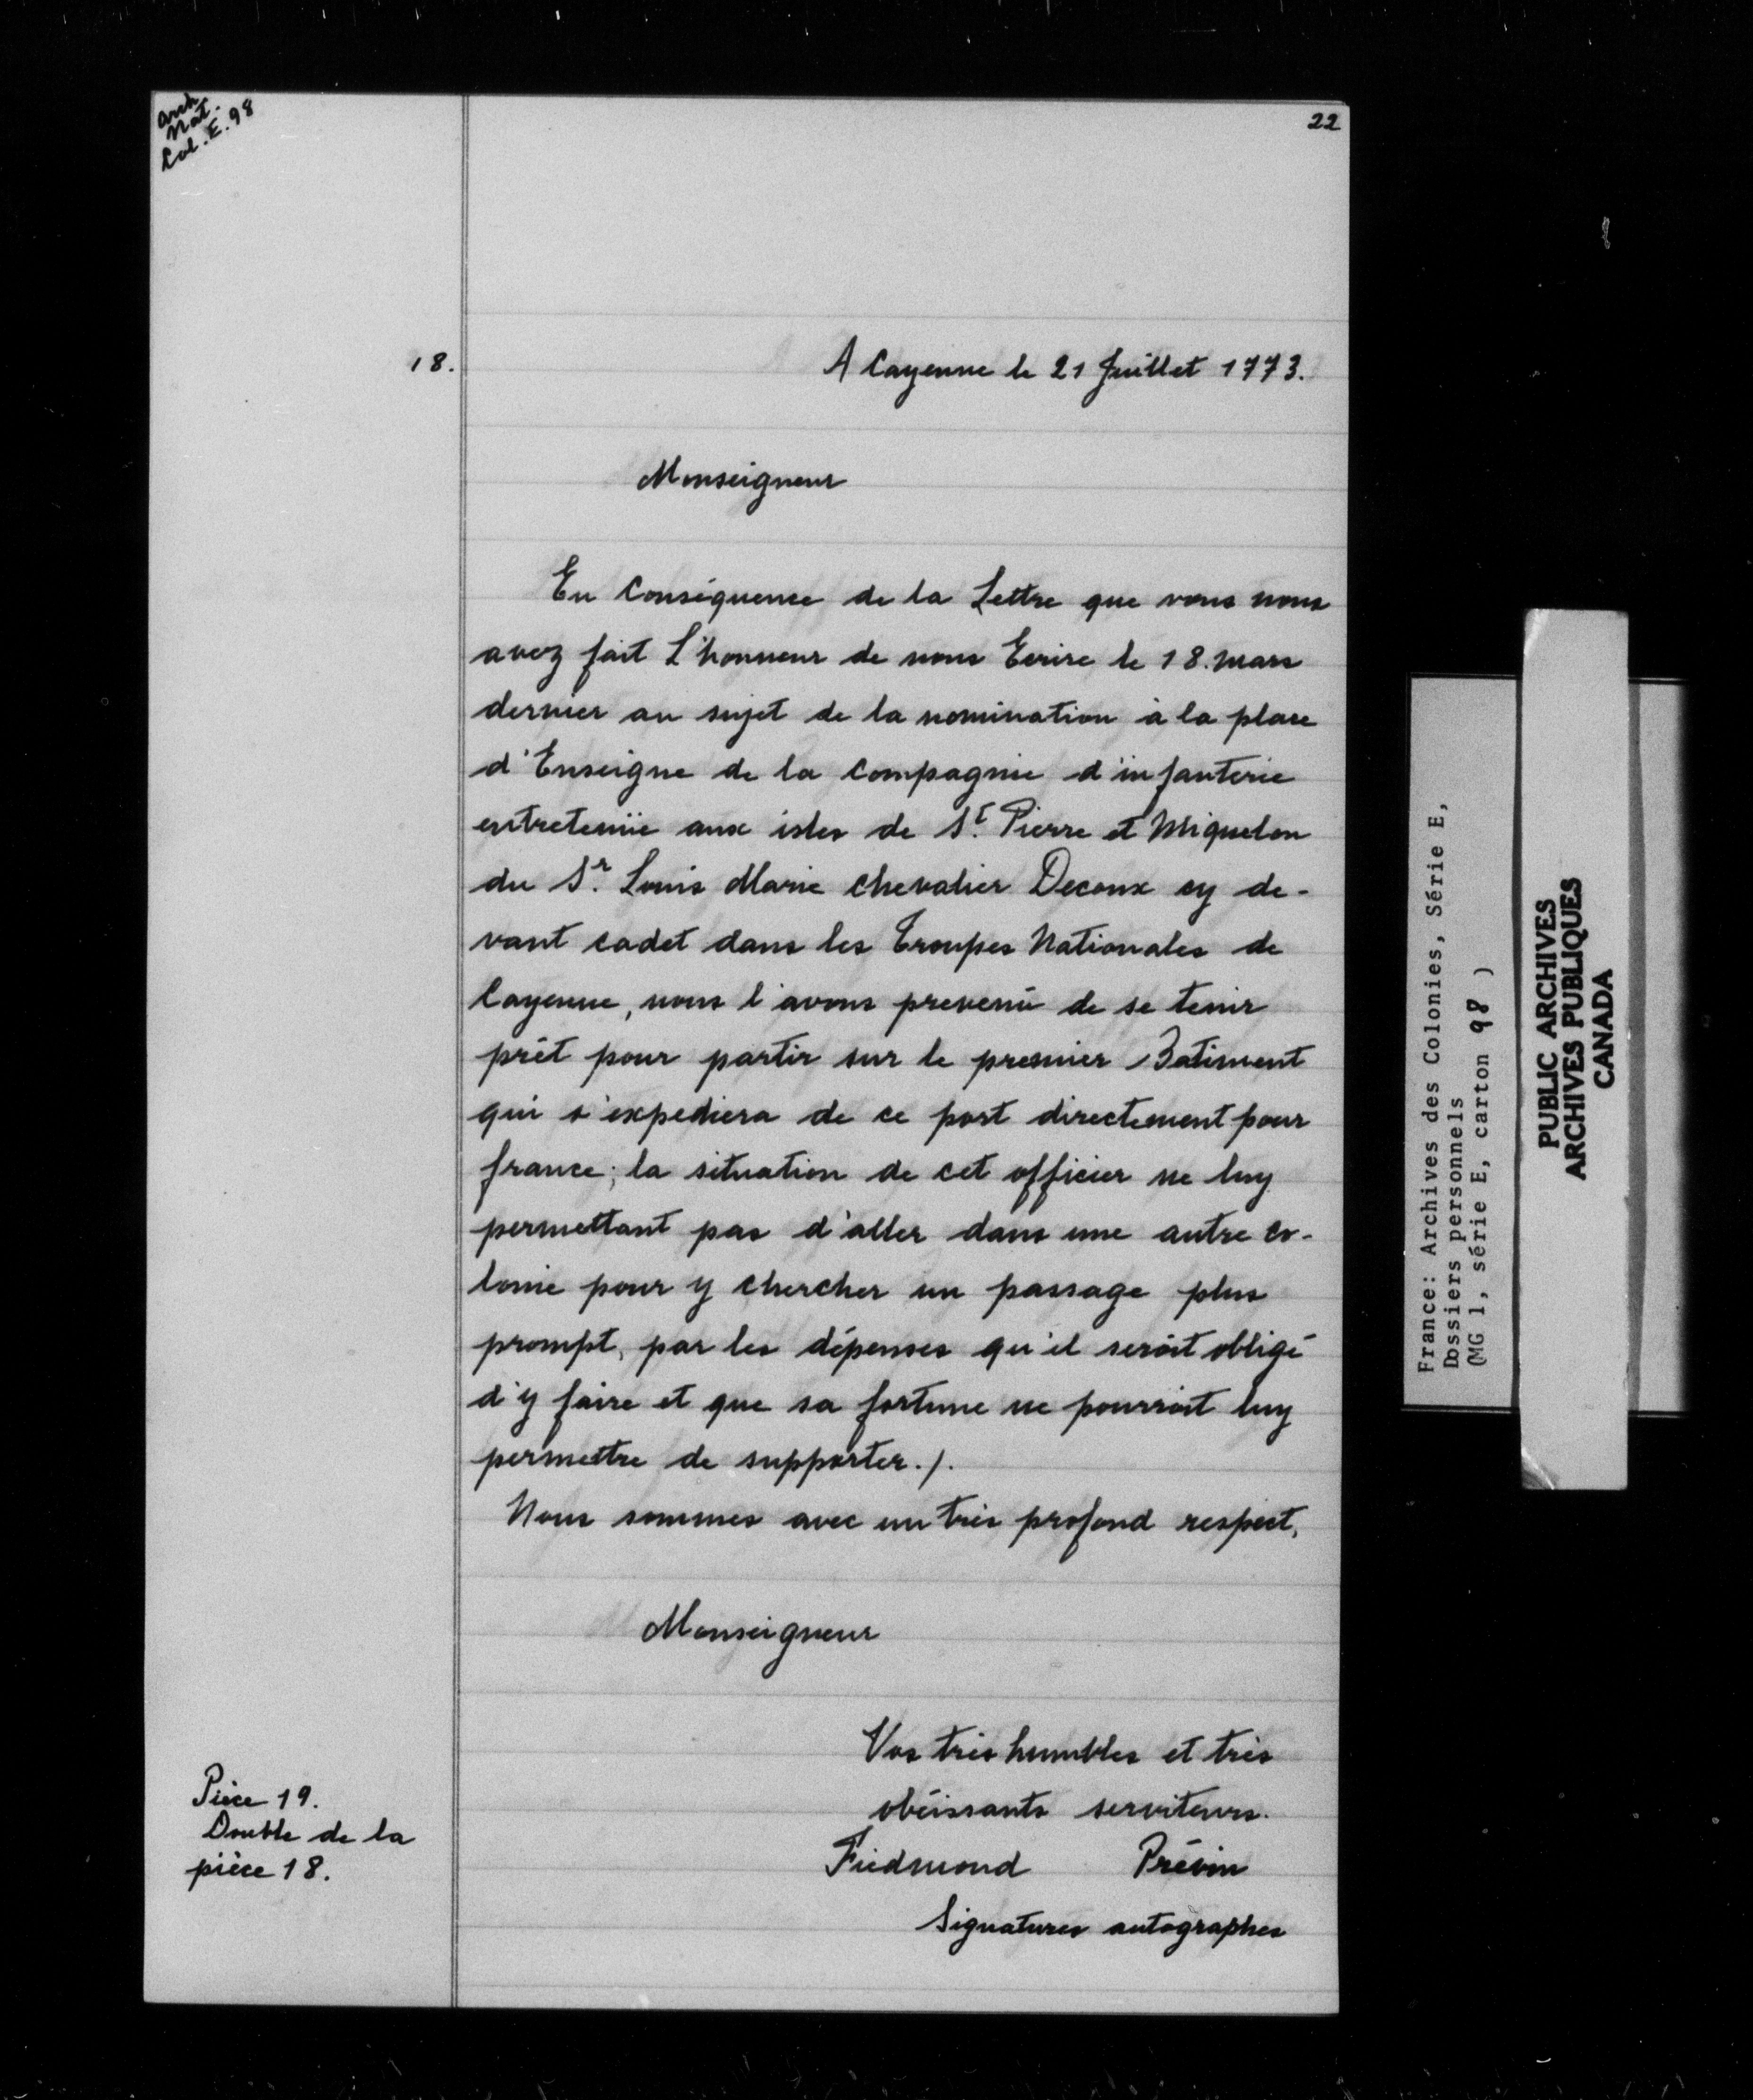 Arch.
Nat.
Col. E. 98
22
18.
A Cayenne le 21 Juillet 1773.
Monseigneur
En Conséquence de la Lettre que vous nous
avez fait L'honneur de nous Ecrire le 18. mars
dernier au sujet de la nomination à la place
d'Enseigne de la Compagnie d'infanterie
entretenüe aux isles de St. Pierre et Miquelon
du Sr. Louis Marie Chevalier Decoux cy de-
vant cadet dans les Troupes Nationales de
Cayenne, nous l'avons prevenû de se tenir
prêt pour partir sur le premier Batiment
qui s'expediera de ce port directement pour
france; la situation de cet officier ne luy
permettant pas d'aller dans une autre Co-
lonie pour y chercher un passage plus
prompt, par les dépenses qu'il seroit obligé
d'y faire et que sa fortune ne pourroit luy
permettre de supporter./.
Nous sommes avec un très profond respect,
Monseigneur
Vos très humbles et très
obéissants serviteurs.
Fiedmond Prévin
Signatures autographes
Pièce 19.
Double de la
pièce 18.
France: Archives des Colonies, Série E,
Dossiers personnels
(MG 1, série E, carton 98 )
PUBLIC ARCHIVES
ARCHIVES PUBLIQUES
CANADA